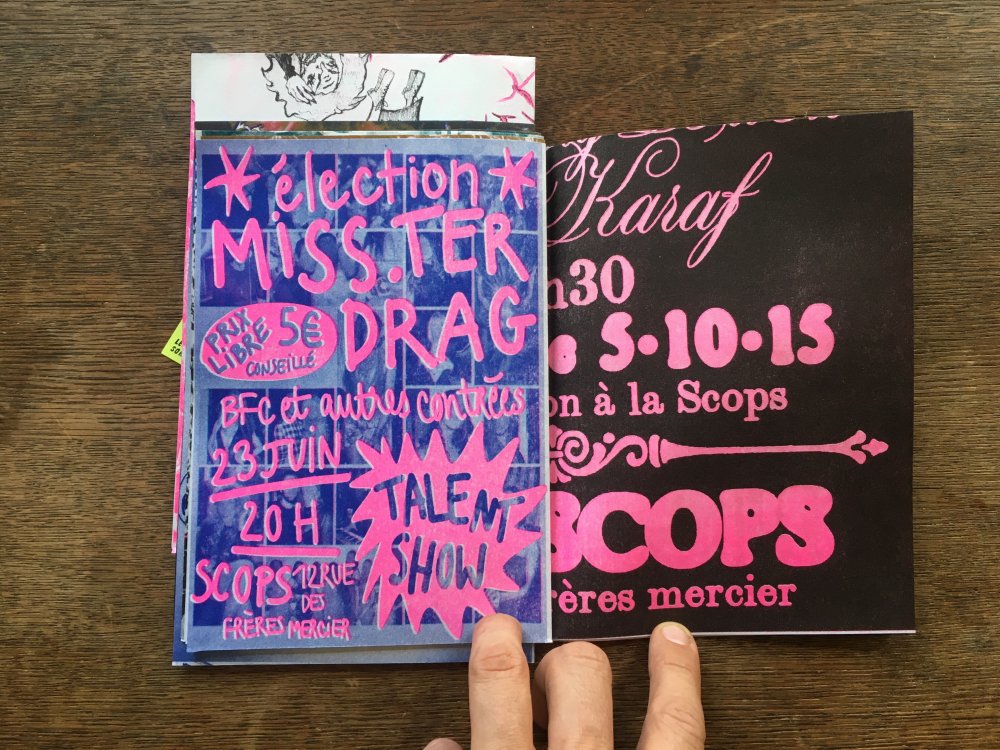 élection
MiSS.TER
DRAG
PRIX
LIBRE
5€
CONSEILLÉ
BFC et autres contrées
23 JUIN
20 H
TALENT
SHOW
SCOPS 12 RUE
DES
FRÈRES MERCIER
Karaf
h30
5•10•15
on à la Scops
SCOPS
frères mercier